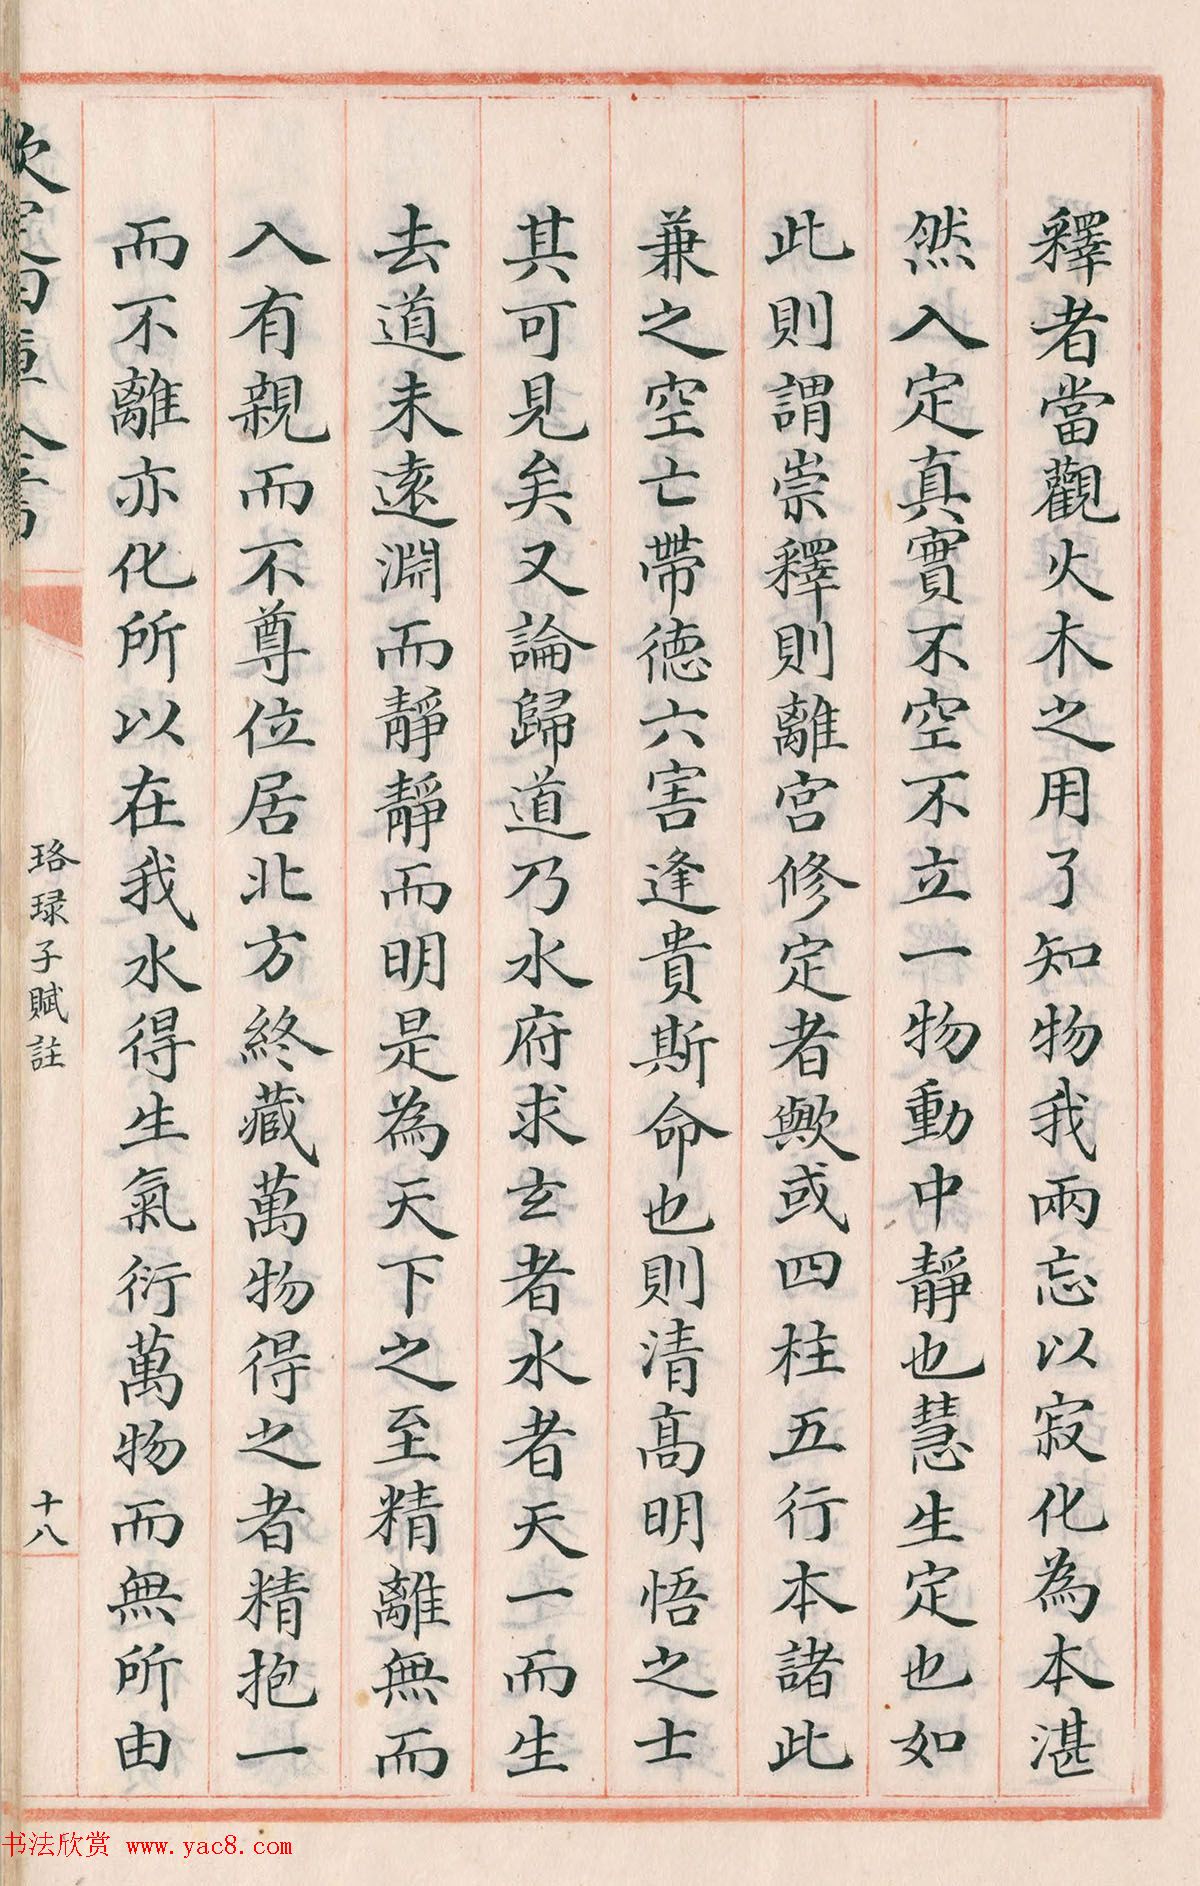 釋者當觀火木之用了知物我兩忘以寂化為本湛
然入定真實不空不立一物動中靜也慧生定也如
此則謂崇釋則離宮修定者歟或四柱五行本諸此
兼之空亡帶德六害逢貴斯命也則清高明悟之士
其可見矣又論歸道乃水府求玄者水者天一而生
去道未遠淵而靜靜而明是為天下之至精離無而
入有親而不尊位居北方終藏萬物得之者精抱一
而不離亦化所以在我水得生氣衍萬物而無所由
欽定四庫全書
珞琭子賦註
十八
书法欣赏 www.yac8.com